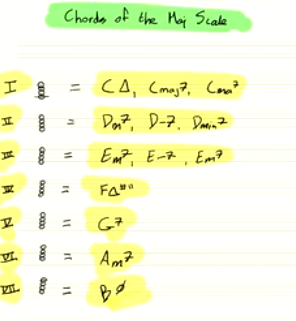 Chords of the Maj Scale
I = CΔ, Cmaj7, Cma7
II = Dm7, D-7, Dmin7
III = Em7, E-7, Em7
IV = FΔ
V = G7
VI = Am7
VII = Bø